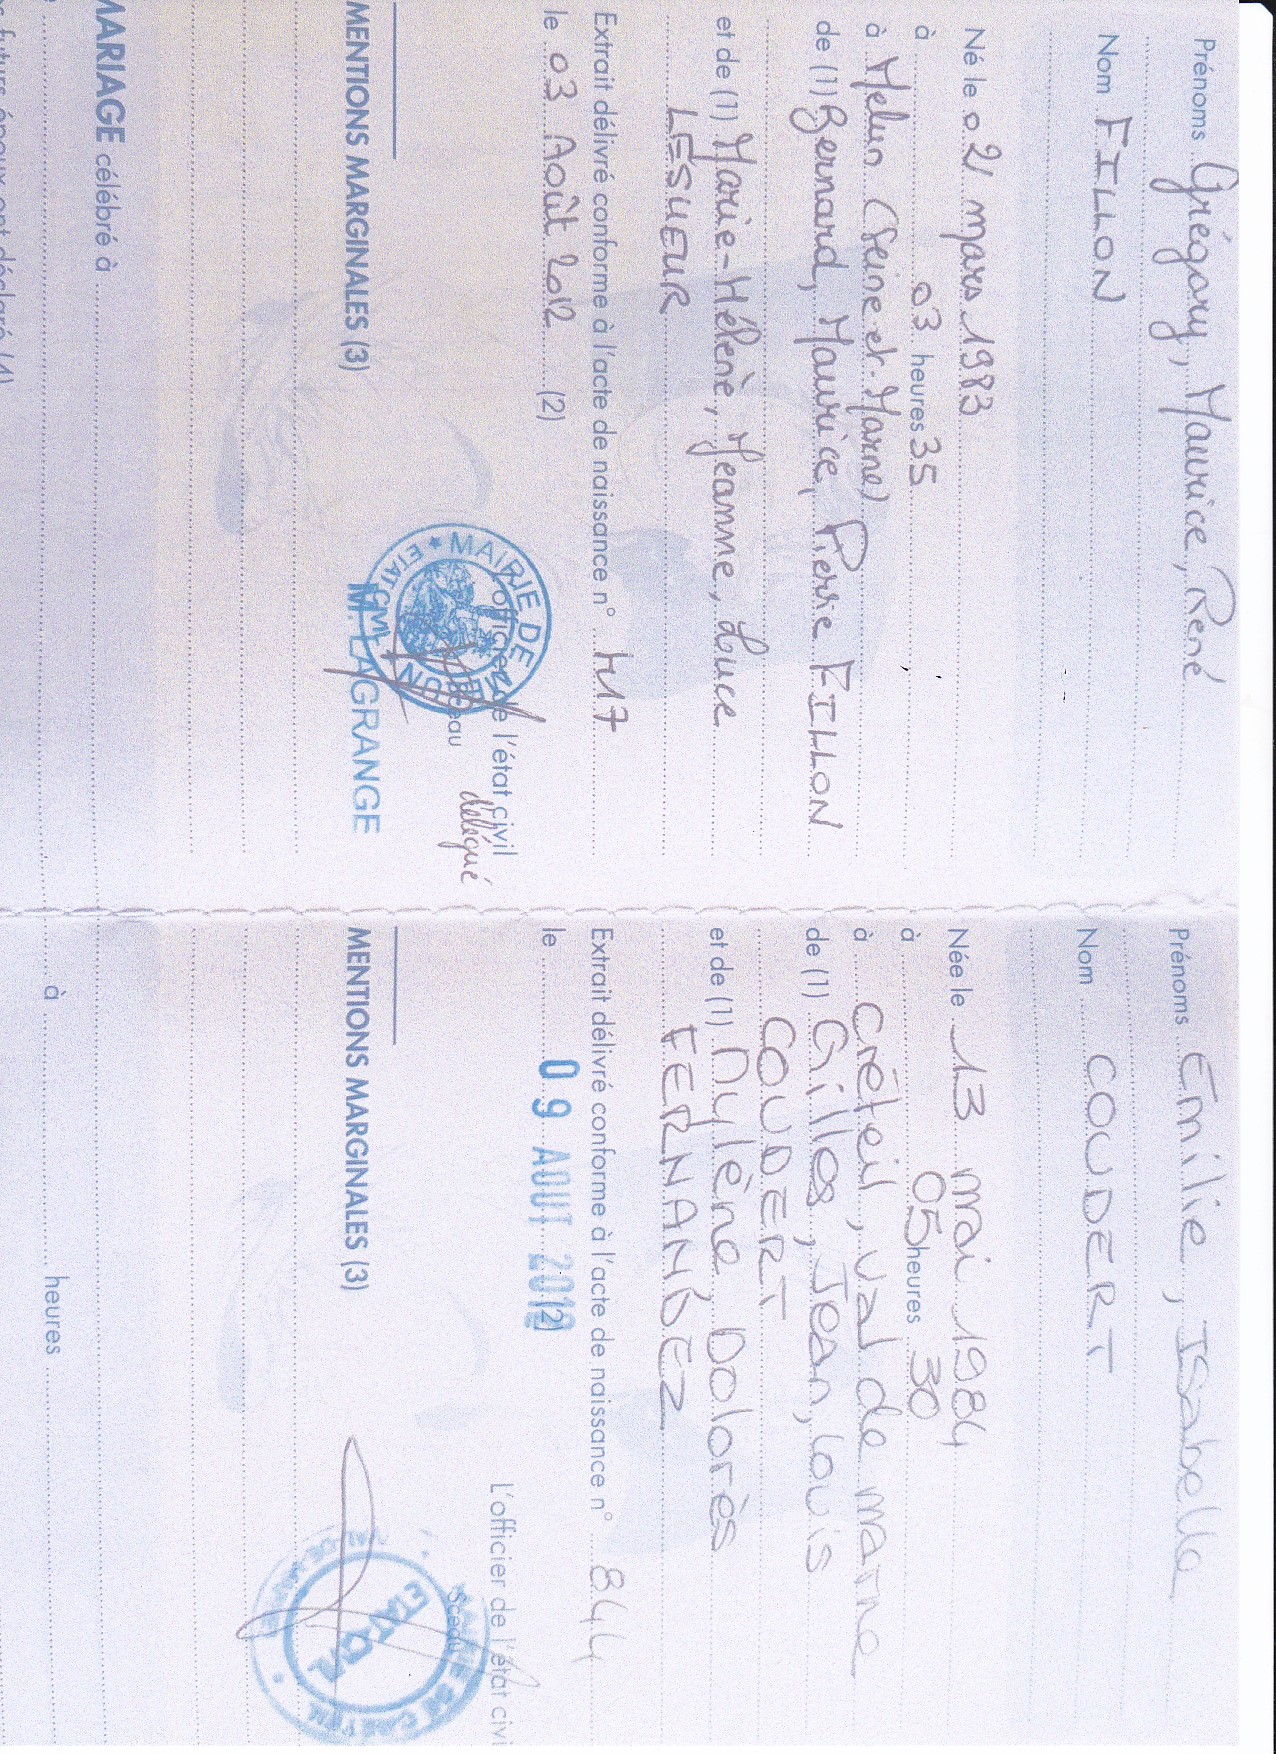 Prénoms Grégory, Maurice, René
Nom FILLON
Né le 02 mars 1983
à 03 heures 35
à Melun (Seine et Marne)
de (1) Bernard, Maurice, Pierre FILLON
et de (1) Marie-Hélène, Jeanne, Luce
LESUEUR
Extrait délivré conforme à l'acte de naissance n° 417
le 03 Août 2012 (2)
L'officier de l'état civil
délégué
Sceau
MAIRIE DE MELUN
ETAT CIVIL
M. LAGRANGE
MENTIONS MARGINALES (3)
MARIAGE célébré à
futurs époux ont déclaré (4)
Prénoms Emilie, Isabelle
Nom COUDERT
Née le 13 mai 1984
à 05 heures 30
à Créteil, Val de marne
de (1) Gilles, Jean, Louis
COUDERT
et de (1) Nylène, Dolorès
FERNANDEZ
Extrait délivré conforme à l'acte de naissance n° 844
le 09 AOUT 2012 (2)
L'officier de l'état civi
Sceau
MAIRIE DE CRETEIL
VAL DE MARNE
ETAT CIVIL
MENTIONS MARGINALES (3)
à heures